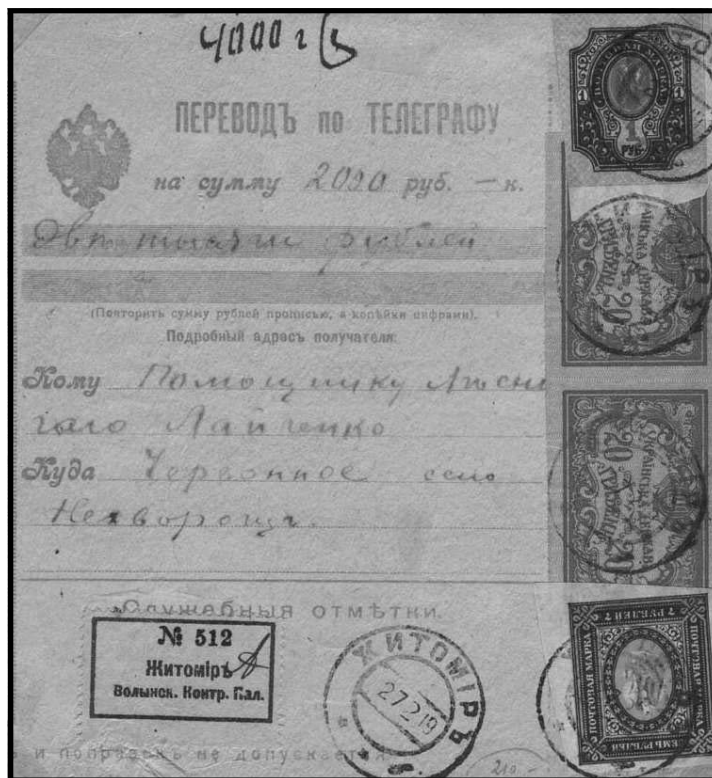 4000 г
ПЕРЕВОДЪ по ТЕЛЕГРАФУ
на сумму 2000 руб. — к.
Двѣ тысячи рублей
(Повторить сумму рублей прописью, а копѣйки цифрами).
Подробный адресъ получателя:
Кому Помощнику Лѣсни
чаго
Куда Червонное село
Нехворощь
Служебныя отмѣтки.
№ 512
Житоміръ
Волынск. Контр. Пал.
ЖИТОМІРЪ
27 2 19
и поправокъ не допускается
210.-
ПОЧТОВАЯ МАРКА
1 1
1
РУБ.
УКРАЇНСЬКА ДЕРЖАВА
20 20
УКРАЇНСЬКА ДЕРЖАВА
20 20
7 РУБЛЕЙ 7
ПОЧТОВАЯ МАРКА
ПОЧТОВАЯ МАРКА
СЕМЬ РУБЛЕЙ